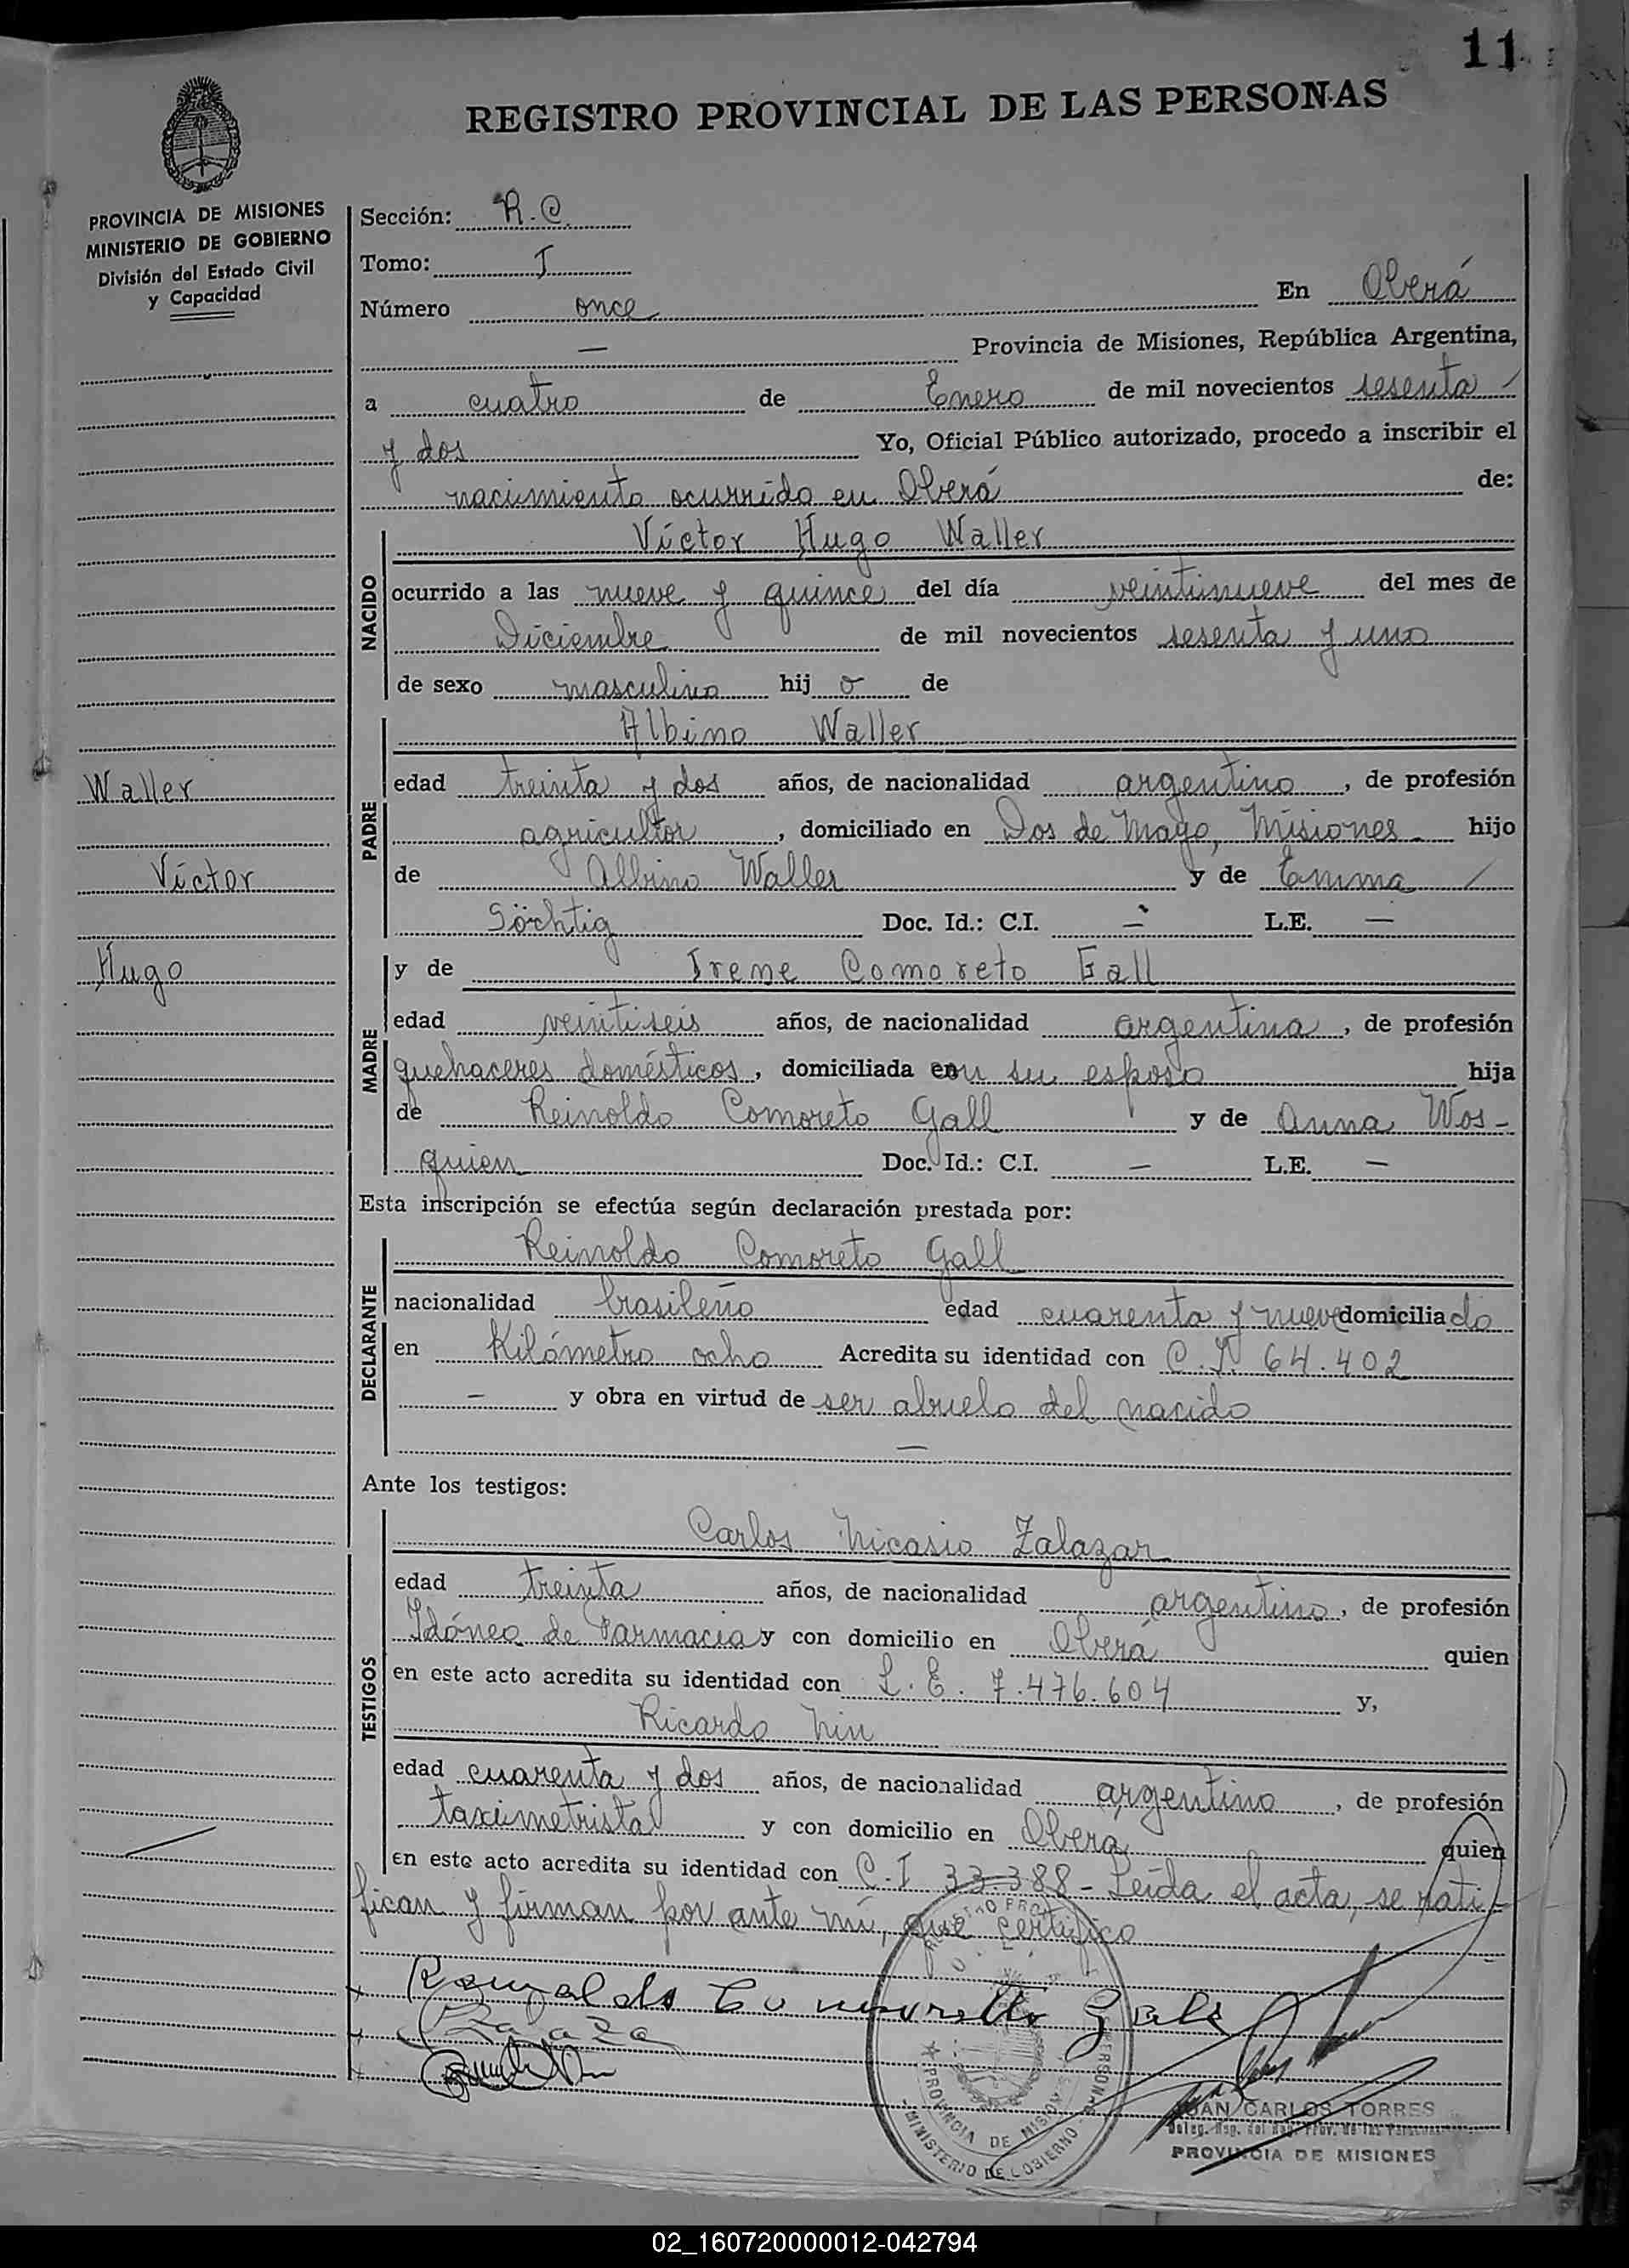 11
REGISTRO PROVINCIAL DE LAS PERSONAS
PROVINCIA DE MISIONES
MINISTERIO DE GOBIERNO
División del Estado Civil
y Capacidad
Sección: R.C.
Tomo: I
Número once En Oberá
— Provincia de Misiones, República Argentina,
a cuatro de Enero de mil novecientos sesenta /
y dos Yo, Oficial Público autorizado, procedo a inscribir el
nacimiento ocurrido en Oberá de:
NACIDO
Víctor Hugo Waller
ocurrido a las nueve y quince del día veintinueve del mes de
Diciembre de mil novecientos sesenta y uno
de sexo masculino hij o de
PADRE
Albino Waller
edad treinta y dos años, de nacionalidad argentino, de profesión
agricultor, domiciliado en Dos de Mayo, Misiones - hijo
de Albino Waller y de Emma /
Söchtig Doc. Id.: C.I. — L.E. —
MADRE
y de Irene Comoreto Gall
edad veintiseis años, de nacionalidad argentina, de profesión
quehaceres domésticos, domiciliada con su esposo hija
de Reinoldo Comoreto Gall y de Anna Wos-
quien Doc. Id.: C.I. — L.E. —
Esta inscripción se efectúa según declaración prestada por:
DECLARANTE
Reinoldo Comoreto Gall
nacionalidad brasileño edad cuarenta y nueve domiciliado
en Kilómetro ocho Acredita su identidad con C.I 64.402
— y obra en virtud de ser abuelo del nacido
—
Ante los testigos:
TESTIGOS
Carlos Nicasio Zalazar
edad treinta años, de nacionalidad argentino, de profesión
Idóneo de Farmacia y con domicilio en Oberá quien
en este acto acredita su identidad con L.E. 7.476.604 y,
Ricardo Nin
edad cuarenta y dos años, de nacionalidad argentino, de profesión
taximetrista y con domicilio en Oberá quien
en este acto acredita su identidad con C.I 33.388 - Leída el acta, se rati-
fican y firman por ante mí, que certifico
Waller
Víctor
Hugo
REGISTRO PROV
PERSONAS
★ PROVINCIA DE MISIONES
MINISTERIO DE GOBIERNO
JUAN CARLOS TORRES
PROVINCIA DE MISIONES
02_160720000012-042794